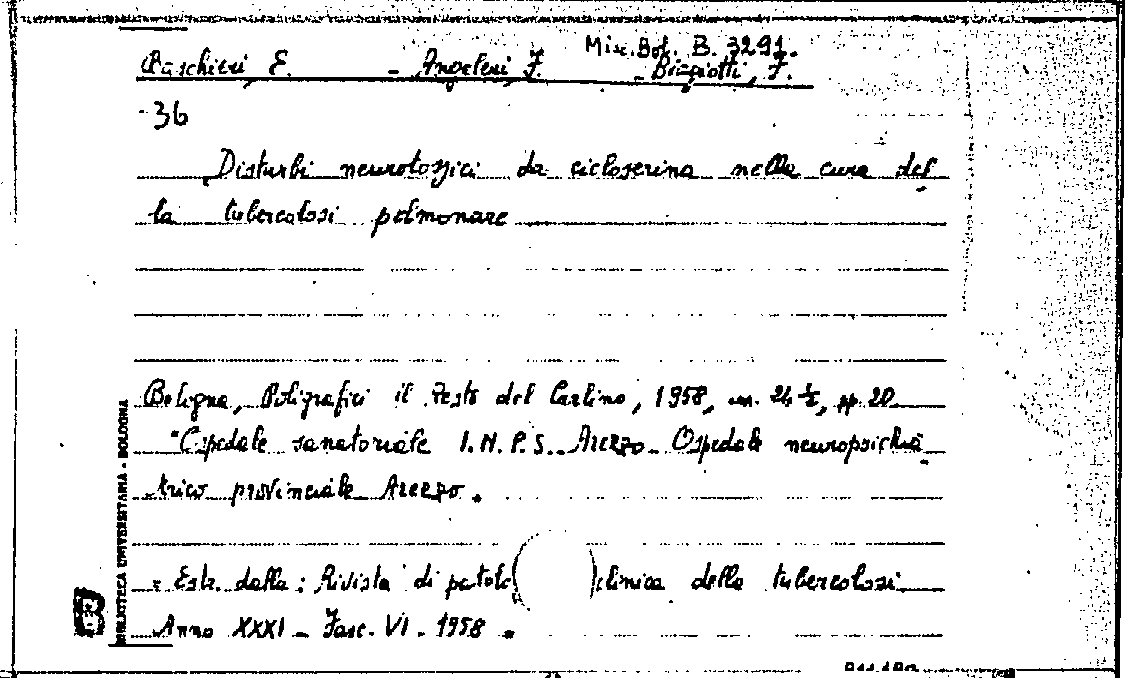 Misc. Bol. B. 3291.
Paschieri, E. - Angeleri, F. - Biagiotti, F.
- 36
Disturbi neurotossici da cicloserina nella cura del
la tubercolosi polmonare
Bologna, Poligrafici il Resto del Carlino, 1958, in. 24 ½, pp. 20
"Ospedale sanatoriale I.N.P.S. Arezzo - Ospedale neuropsichia
trico provinciale Arezzo.
Estr. dalla: Rivista di patolo clinica della tubercolosi
Anno XXXI - Fasc. VI - 1958
BIBLIOTECA UNIVERSITARIA - BOLOGNA
B